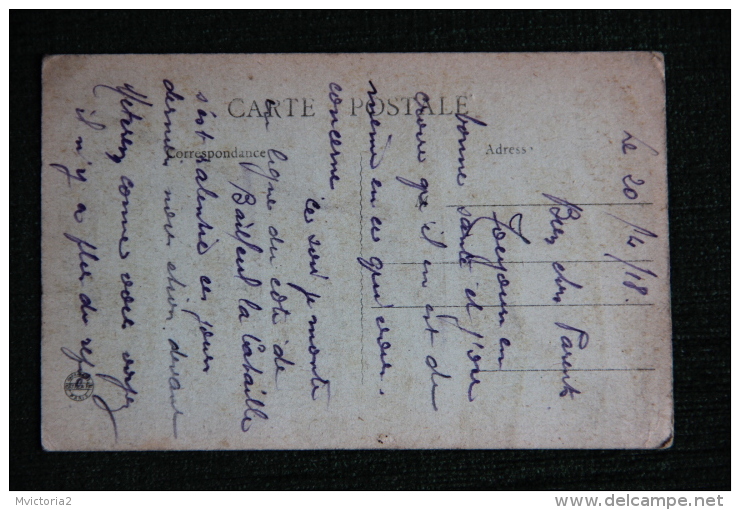 CARTE POSTALE
Correspondance
Adresse
Le 20/4/18.
Bien chers Parents
Toujours en
bonne santé et j'ose
croire qu'il en est de
même en ce qui vous
concerne
Ce soir je monte
en ligne du coté de
Bailleul la bataille
s'est ralentie ces jours
derniers nous étions devant
Méteren comme vous voyez
il n'y a plus de repos
Mvictoria2
delcampe.net